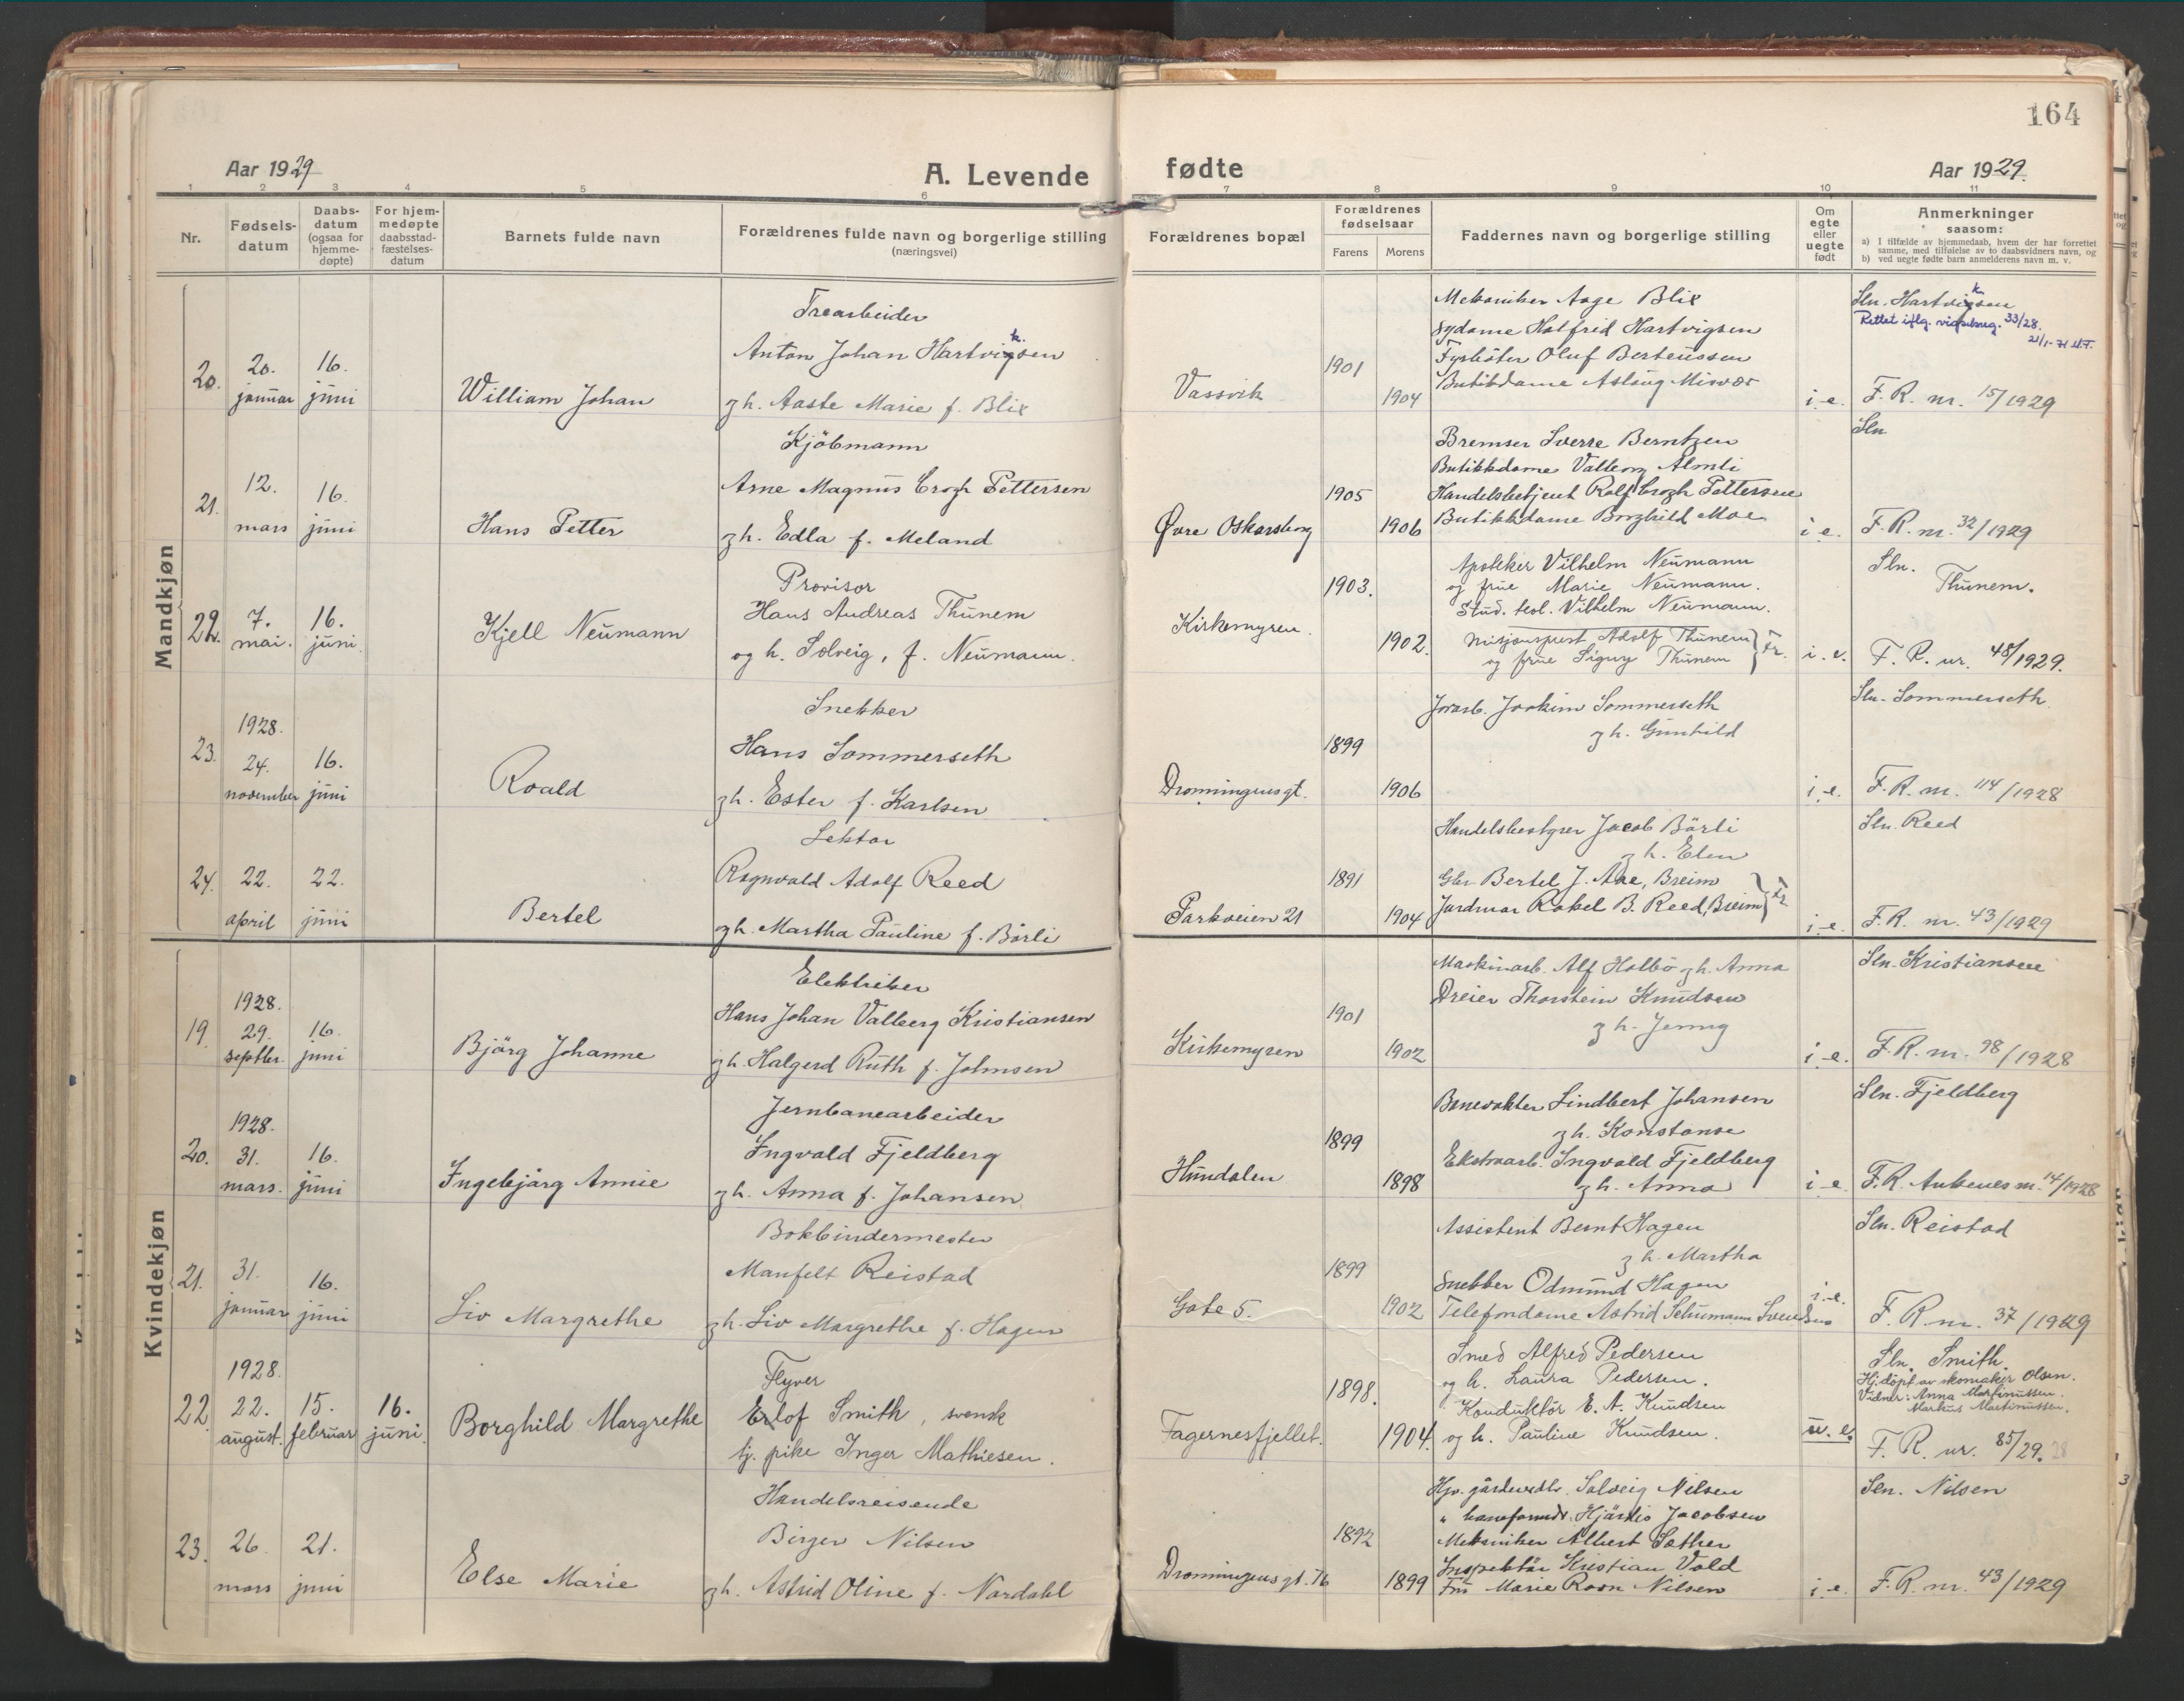 164
Aar 1929
A. Levende
fødte
Aar 1929.
1 2 3 4 5 6 7 8 9 10 11
Nr.
Fødsels-
datum
Daabs-
datum
(ogsaa for
hjemme-
døpte)
For hjem-
medøpte
daabsstad-
fæstelses-
datum
Barnets fulde navn
Forældrenes fulde navn og borgerlige stilling
(næringsvei)
Forældrenes bopæl
Forældrenes
fødselsaar
Farens
Morens
Faddernes navn og borgerlige stilling
Om
egte
eller
uegte
født
Anmerkninger
saasom:
a) I tilfælde av hjemmedaab, hvem der har forrettet
samme, med tilføielse av to daabsvidners navn, og
b) ved uegte fødte barn anmelderens navn m. v.
Mandkjøn
20.
20.
januar
16.
juni
William Johan
Trearbeider
Anton Johan Hartvigsen
k.
gh. Aaste Marie f. Blix
Vassvik
1901
1904
Mekaniker Aage Blix
Sydame Halfrid Hartvigsen
Fyrbøter Oluf Berteussen
Butikdame Aslaug Misvær
i.e.
Sln. Hartvigsen
k
Rettet iflg. vigselsreg. 33/28.
21/1-71
F. R. nr. 15/1929
21.
12.
mars
16.
juni
Hans Petter
Kjöbmann
Arne Magnus Crogh Pettersen
gh. Edla f. Meland
Øvre Oskarsborg
1905
1906
Bremser Sverre Berntzen
Butikkdame Valborg Almli
Handelsbetjent Rolf Crogh Pettersen
Butikkdame Borghild Moe
i.e.
Sln
F. R. nr. 32/1929
22.
7.
mai.
16.
juni.
Kjell Neumann
Provisor
Hans Andreas Thunem
og h. Solveig, f. Neumann.
Kirkemyren.
1903.
1902.
Apoteker Vilhelm Neumann
og frue Marie Neumann.
Stud. teol. Vilhelm Neumann.
Misjonsprest Adolf Thunem
og frue Signy Thunem
fr.
i. e.
Sln.
Thunem.
F. R. nr. 48/1929.
23.
1928.
24.
november
16.
juni
Roald
Snekker
Hans Sommerseth
gh. Ester f. Karlsen
Dronningensgt.
1899
1906
Jernarb. Joakim Sommerseth
gh. Gunhild
i.e.
Sln. Sommerseth
F. R. nr. 114/1928
24.
22.
april
22.
juni
Bertel
Lektor
Ragnvald Adolf Reed
gh. Martha Pauline f. Börli
Parkveien 21
1891
1904
Handelsbestyrer Jacob Börli
gh. Elen
Gbr. Bertel J. Aae, Breim
Jordmor Rakel B. Reed, Breim
fr.
i.e.
Sln. Reed
F. R. nr. 43/1929
Kvindekjøn
19.
1928.
29.
septbr.
16.
juni
Bjärg Johanne
Elektriker
Hans Johan Valberg Kristiansen
gh. Halgerd Ruth f. Johnsen
Kirkemyren
1901
1902
Maskinarb. Alf Holbö gh. Anna
Dreier Thorstein Knudsen
gh. Jenny
i.e.
Sln. Kristiansen
F. R. nr. 98/1928
20.
1928.
31.
mars.
16.
juni
Ingebjärg Annie
Jernbanearbeider
Ingvald Fjeldberg
gh. Anna f. Johansen
Hundalen
1899
1898
Banevokter Lindbert Johansen
gh. Konstanse
Ekstraarb. Ingvald Fjeldberg
gh. Anna
i.e
Sln. Fjeldberg
F. R. Ankenes nr. 14/1928
21.
31.
januar
16.
juni
Liv Margrethe
Bokbindermester
Manfelt Reistad
gh. Liv Margrethe f. Hagen
Gate 5.
1899
1902
Assistent Bernt Hagen
gh. Martha
Snekker Odmund Hagen
Telefondame Astrid Schumann Svendsen
i.e.
Sln. Reistad
F. R. nr. 37/1929
22
1928.
22.
august.
15.
februar
16.
juni.
Borghild Margrethe
Flyver
Erlof Smith, svensk
tj. pike Inger Mathiesen.
Fagernesfjellet.
1898.
1904.
Smed Alfred Pedersen
og h. Laura Pedersen.
Konduktör E. A. Knudsen
og h. Pauline Knudsen.
u. e.
Sln. Smith.
Hj. döpt av skomaker Olsen.
Vidner: Anna Martinussen.
Markus Martinussen.
F. R. nr. 85/29. 28
23.
26.
mars
21.
juni
Else Marie
Handelsreisende
Birger Nilsen
gh. Astrid Oline f. Nordahl
Dronningensgt. 76
1892
1899
Hfr. Solveig Nilsen
" Hjärdis Jacobsen
Mekaniker Albert Sæther
Inspektör Kristian Vold
Fru Marie Roon Nilsen
i.e.
Sln. Nilsen
F. R. nr. 43/1929